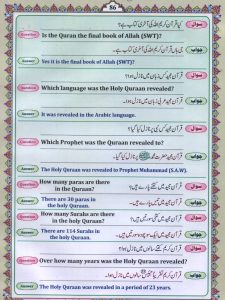 86
سوال کیا قرآن کریم اللہ کی آخری کتاب ہے؟
Question Is the Quran the final book of Allah (SWT)?
جواب جی ہاں قرآن کریم اللہ کی آخری کتاب ہے۔
Answer Yes it is the final book of Allah (SWT).
سوال قرآن مجید کس زبان میں نازل ہوا؟
Question Which language was the Holy Quran revealed?
جواب قرآن مجید عربی زبان میں نازل ہوا۔
Answer It was revealed in the Arabic language.
سوال قرآن مجید کس نبی پر نازل کیا گیا؟
Question Which Prophet was the Quran revealed to?
جواب قرآن مجید حضرت محمد ﷺ پر نازل کیا گیا۔
Answer The Holy Quran was revealed to Prophet Muhammad (S.A.W).
Question How many paras are there
in the Quraan?
سوال قرآن مجید میں کتنے پارے ہیں؟
Answer There are 30 paras in
the holy Quraan.
جواب قرآن مجید میں پارے ہیں۔
Question How many Surahs are there
in the holy Quraan?
سوال قرآن کریم میں کتنی سورتیں ہیں؟
Answer There are 114 Surahs in
the holy Quraan.
جواب قرآن کریم میں سورتیں ہیں۔
سوال قرآن کریم کتنے سالوں میں نازل ہوا؟
Question Over how many years was the Holy Quraan revealed?
جواب قرآن کریم سالوں میں نازل ہوا۔
Answer The Holy Quraan was revealed in a period of 23 years.